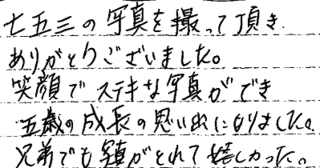 七五三の写真を撮って頂き
ありがとうございました。
笑顔でステキな写真ができ
五歳の成長の思い出になりました。
兄弟でも写真がとれて嬉しかった。